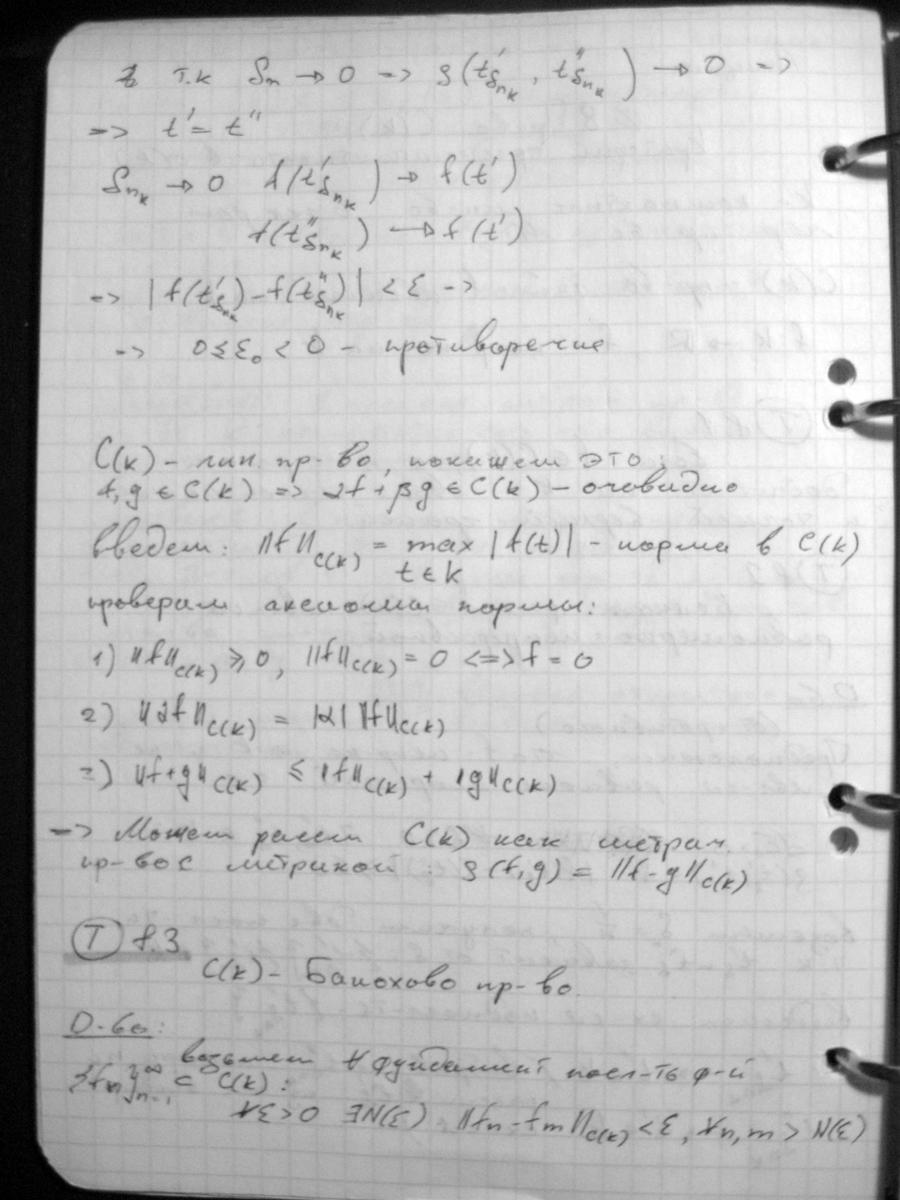 т.к δn → 0 => ρ(t'δnk, t''δnk) → 0 =>
=> t' = t''
δnk → 0 f(t'δnk) → f(t')
f(t''δnk) → f(t')
=> |f(t'δnk) - f(t''δnk)| < ε =>
=> 0 ≤ ε₀ < 0 - противоречие
C(K) - лин пр-во, покажем это:
f, g ∈ C(K) => αf + βg ∈ C(K) - очевидно
введем: ||f||C(K) = max |f(t)| - норма в C(K)
t ∈ K
проверим аксиомы нормы:
1) ||f||C(K) ≥ 0, ||f||C(K) = 0 <=> f = 0
2) ||αf||C(K) = |α| ||f||C(K)
3) ||f+g||C(K) ≤ ||f||C(K) + ||g||C(K)
=> Можем рассм C(K) как метрич.
пр-во с метрикой: ρ(f, g) = ||f - g||C(K)
Т 8.3
C(K) - Банохово пр-во.
D-во:
возьмем ∀ фундамент посл-ть ф-й
{fn}∞n=1 ⊂ C(K):
∀ε>0 ∃N(ε) ||fn - fm||C(K) < ε, ∀n, m > N(ε)